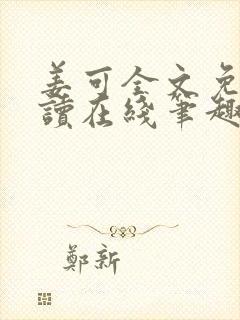 姜可全文免
讀在綫筆趣
鄭新